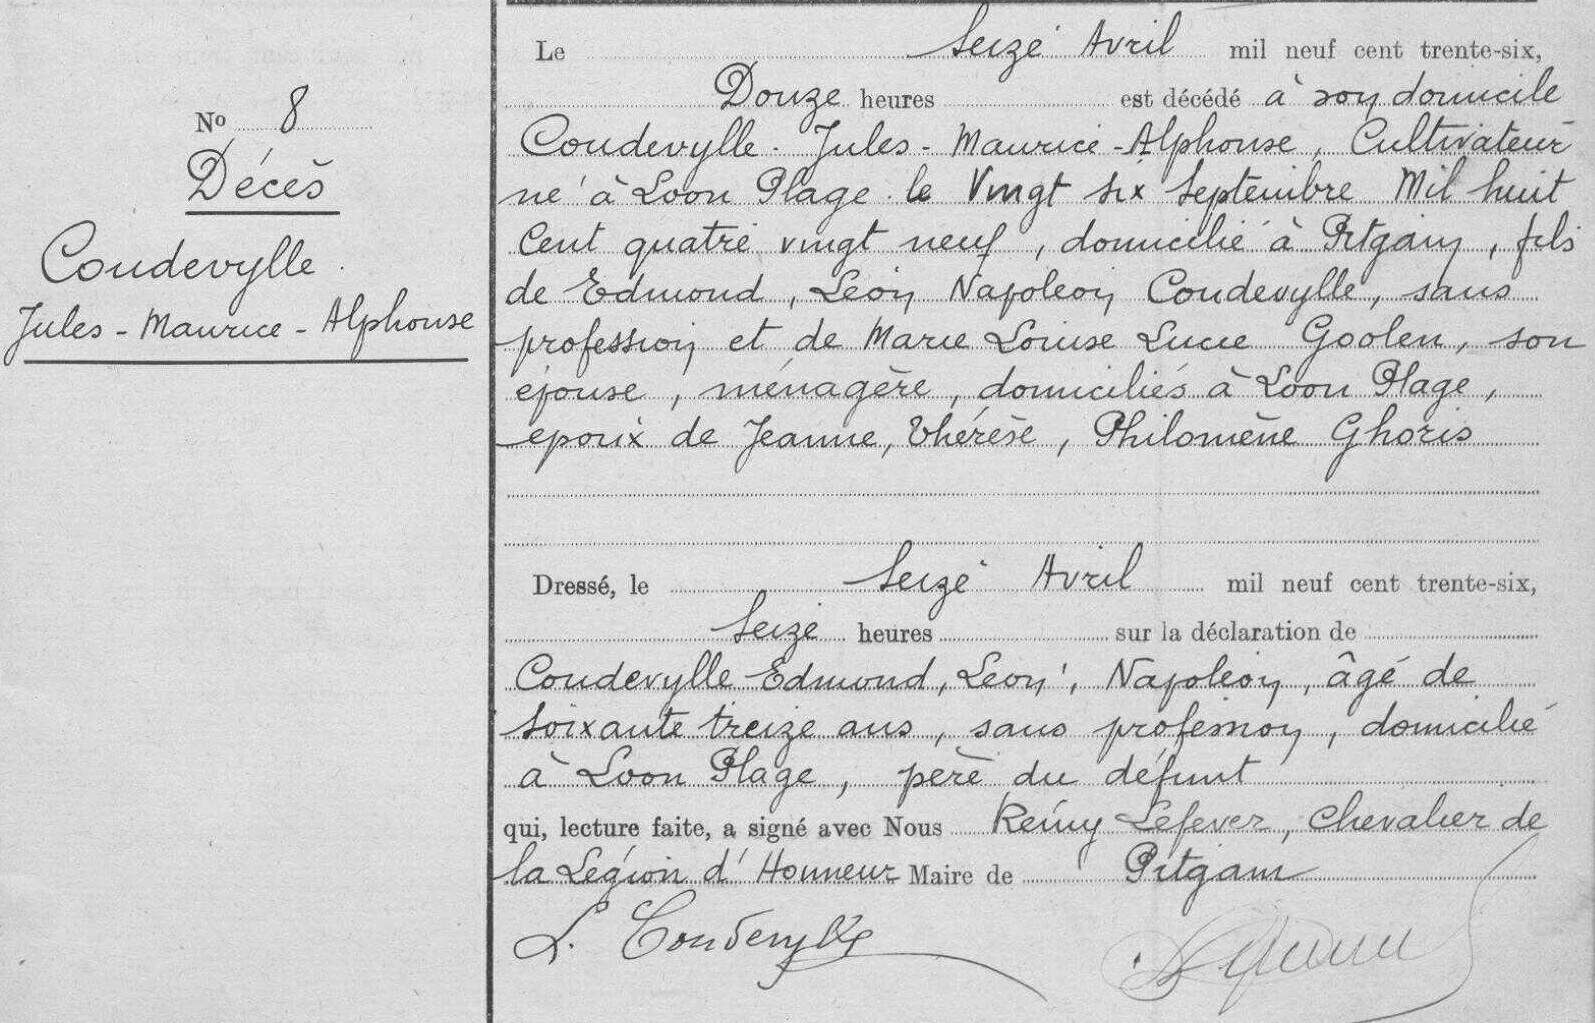 No 8
Décès
Coudevylle.
Jules - Maurice - Alphonse
Le Seize Avril mil neuf cent trente-six,
Douze heures est décédé à son domicile
Coudevylle - Jules - Maurice - Alphonse, Cultivateur
né à Loon Plage le Vingt six Septembre Mil huit
Cent quatre vingt neuf, domicilié à Pitgam, fils
de Edmond, Léon Napoléon Coudevylle, sans
profession et de Marie Louise Lucie Goolen, son
épouse, ménagère, domiciliés à Loon Plage,
époux de Jeanne, Thérèse, Philomène Ghoris
Dressé, le Seize Avril mil neuf cent trente-six,
Seize heures sur la déclaration de
Coudevylle Edmond, Léon, Napoléon, âgé de
soixante treize ans, sans profession, domicilié
à Loon Plage, père du défunt
qui, lecture faite, a signé avec Nous Rémy Lefever, Chevalier de
la Légion d'Honneur Maire de Pitgam
L. Coudevylle